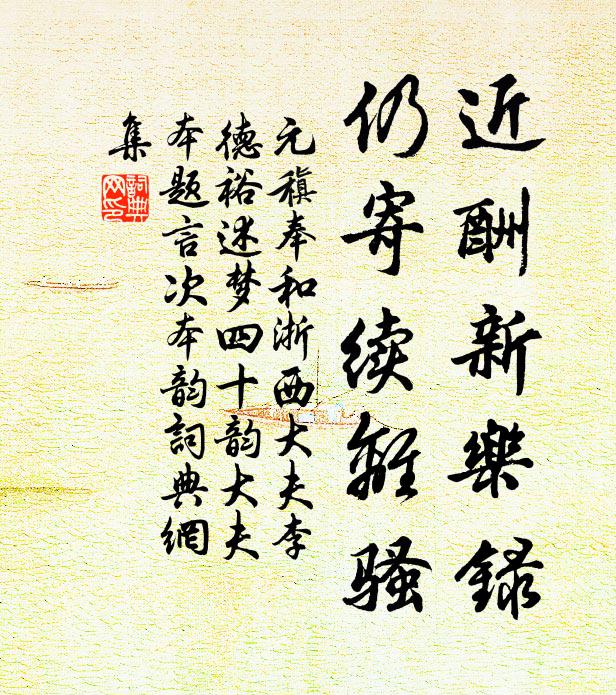 近酬新樂錄
仍寄續離騷
元稹奉和浙西大夫李
德裕述梦四十韵大夫
本题言次本韵詞典網
集
詞典
网印